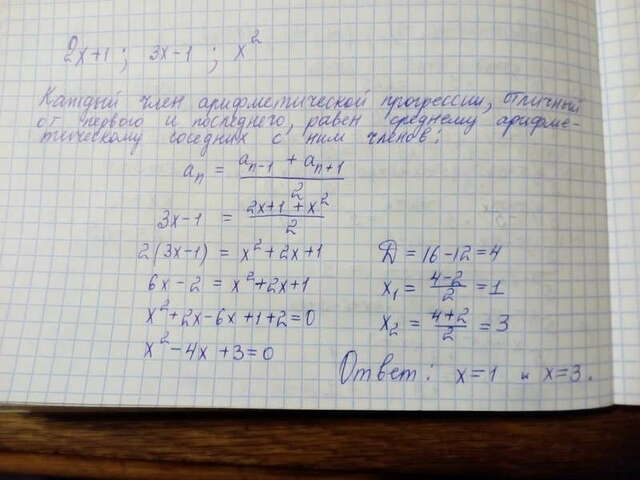 2x+1 ; 3x-1 ; x²
Каждый член арифметической прогрессии, отличный
от первого и последнего, равен среднему арифме-
тическому соседних с ним членов:
aₙ = (aₙ₋₁ + aₙ₊₁)/2
3x-1 = (2x+1+x²)/2
2(3x-1) = x²+2x+1
6x-2 = x²+2x+1
x²+2x-6x+1+2=0
x²-4x+3=0
D = 16-12=4
x₁ = (4-2)/2 = 1
x₂ = (4+2)/2 = 3
Ответ: x=1 и x=3.